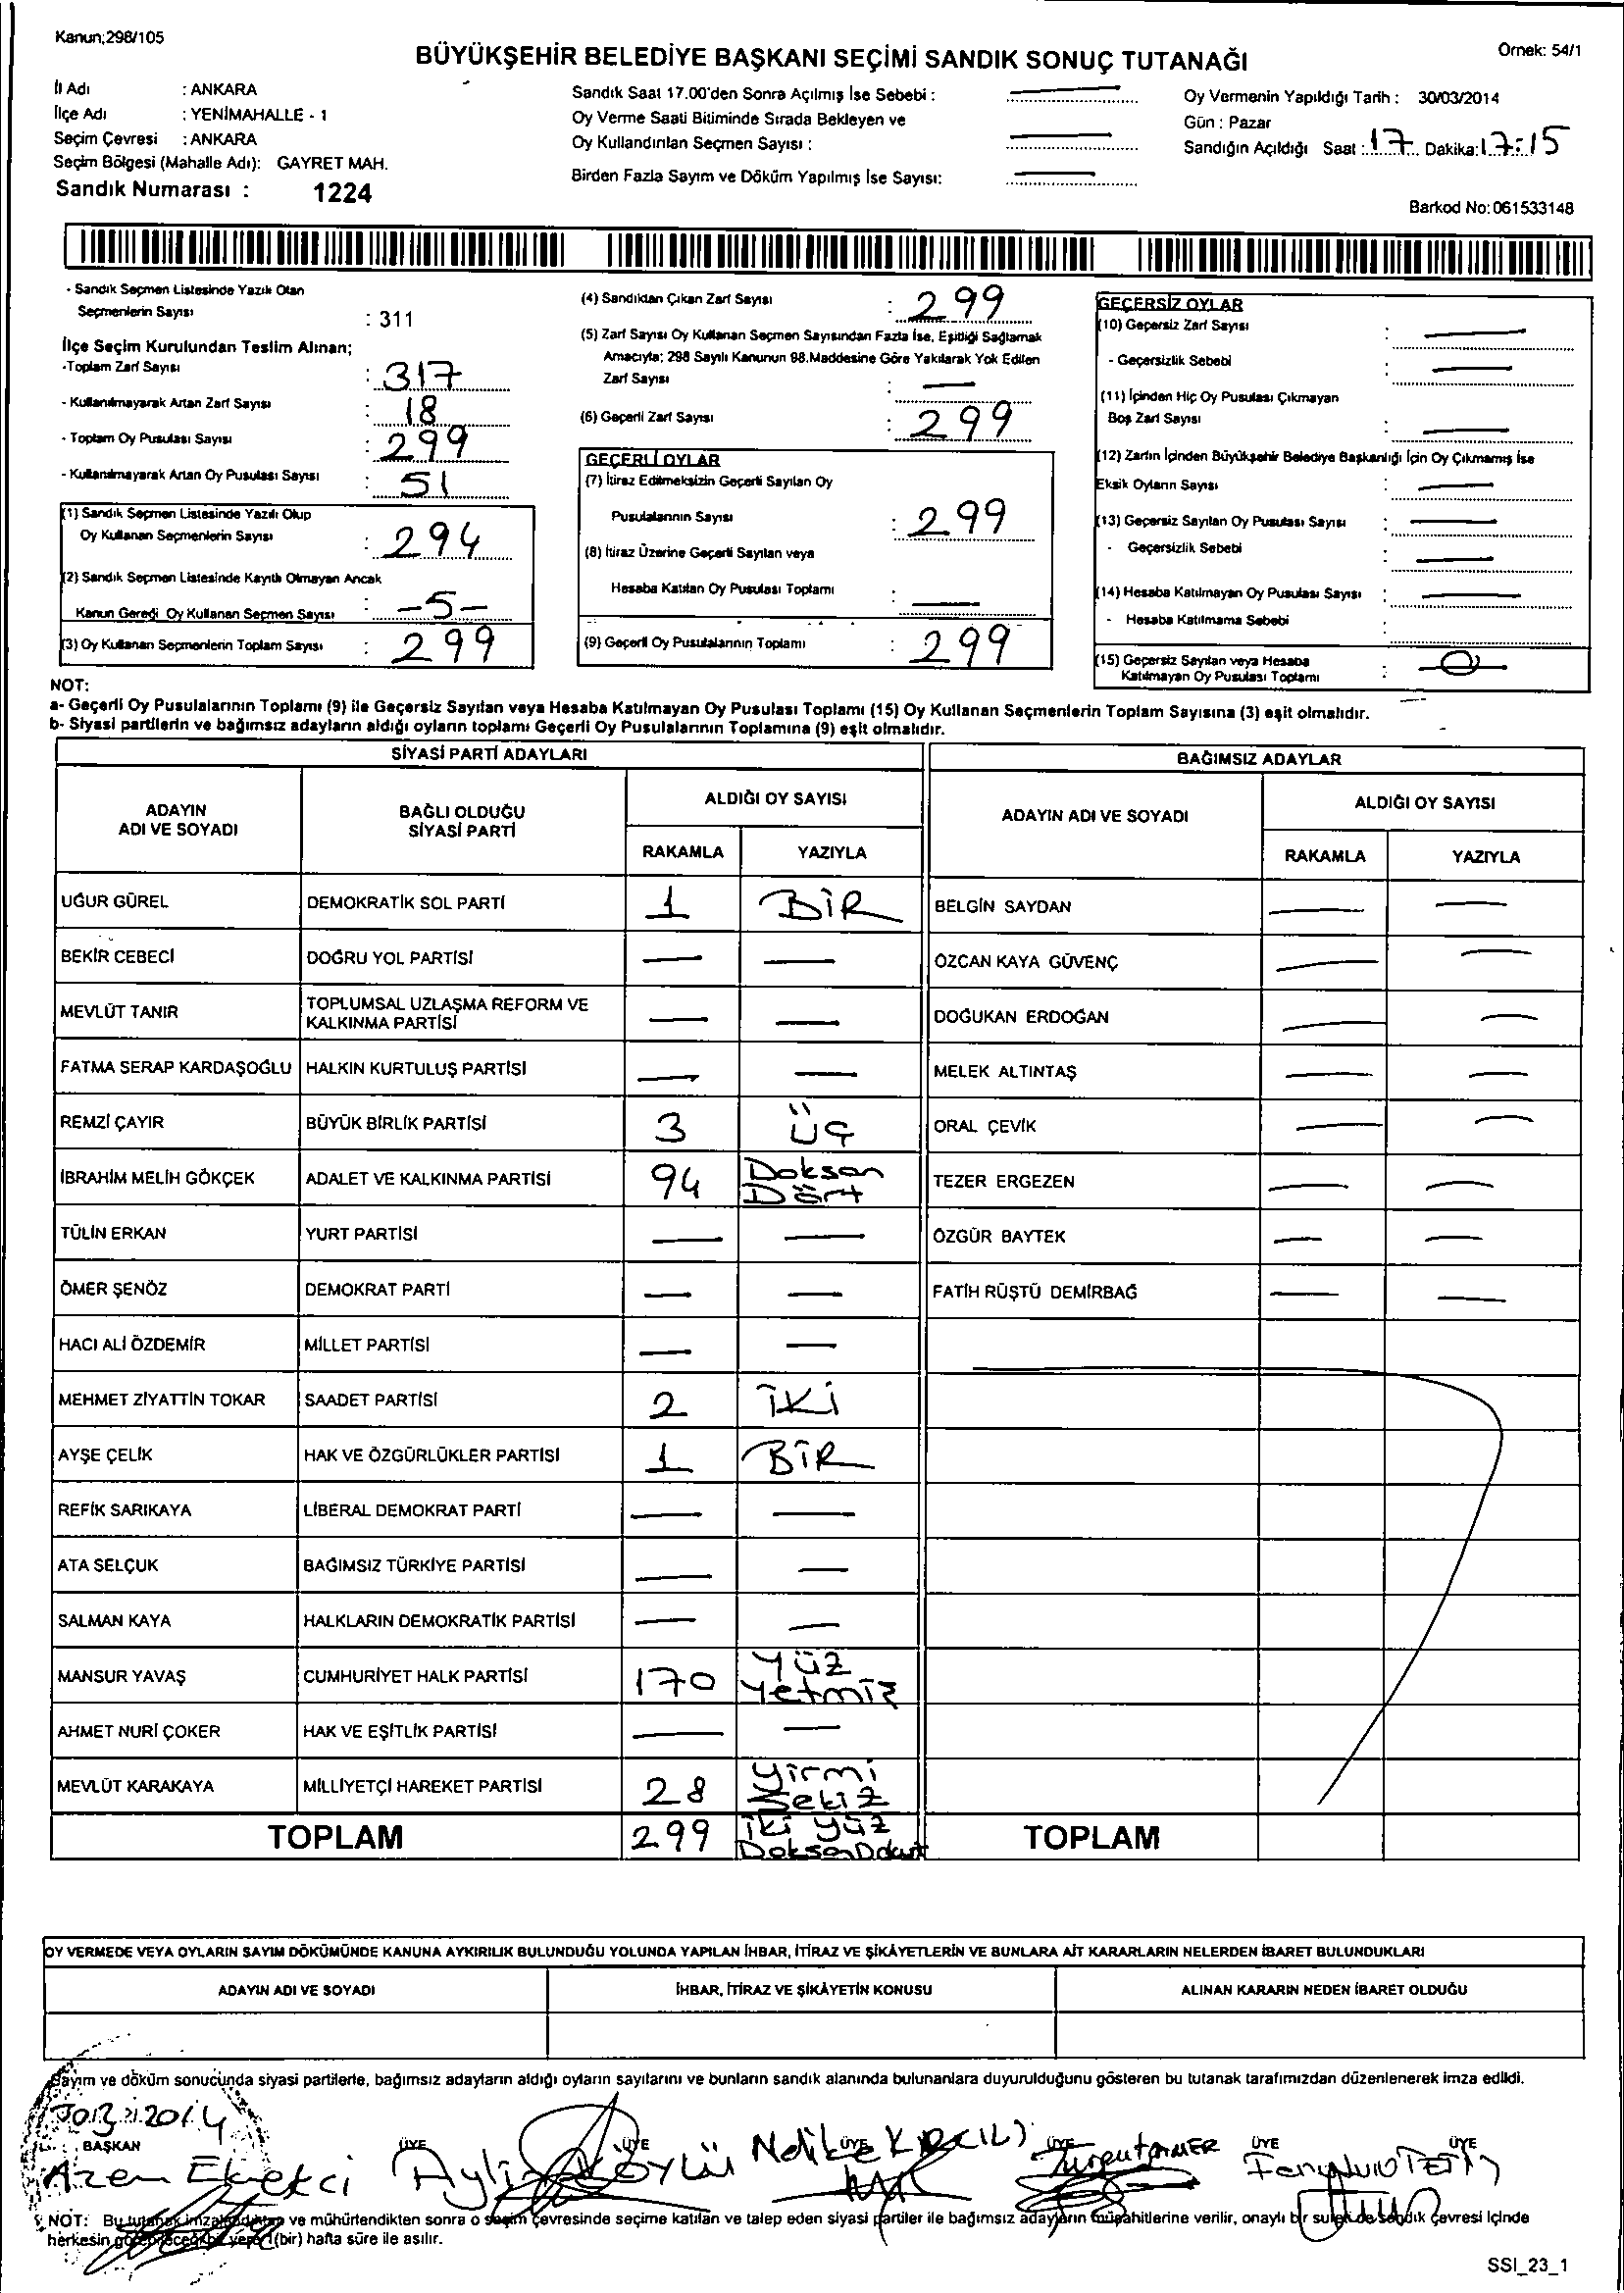 Kanun;298/105
BÜYÜKŞEHİR BELEDİYE BAŞKANI SEÇİMİ SANDIK SONUÇ TUTANAĞI
Örnek: 54/1
İl Adı : ANKARA
İlçe Adı : YENİMAHALLE - 1
Seçim Çevresi : ANKARA
Seçim Bölgesi (Mahalle Adı): GAYRET MAH.
Sandık Numarası : 1224
Sandık Saat 17.00'den Sonra Açılmış İse Sebebi : —
Oy Verme Saati Bitiminde Sırada Bekleyen ve
Oy Kullandırılan Seçmen Sayısı : —
Birden Fazla Sayım ve Döküm Yapılmış İse Sayısı: —
Oy Vermenin Yapıldığı Tarih : 30/03/2014
Gün : Pazar
Sandığın Açıldığı Saat : 17 Dakika: 17:15
Barkod No:061533148
- Sandık Seçmen Listesinde Yazılı Olan
Seçmenlerin Sayısı : 311
İlçe Seçim Kurulundan Teslim Alınan;
-Toplam Zarf Sayısı : 317
- Kullanılmayarak Artan Zarf Sayısı : 18
- Toplam Oy Pusulası Sayısı : 299
- Kullanılmayarak Artan Oy Pusulası Sayısı : 51
(1) Sandık Seçmen Listesinde Yazılı Olup
Oy Kullanan Seçmenlerin Sayısı : 294
(2) Sandık Seçmen Listesinde Kayıtlı Olmayan Ancak
Kanun Gereği Oy Kullanan Seçmen Sayısı : -5-
(3) Oy Kullanan Seçmenlerin Toplam Sayısı : 299
(4) Sandıktan Çıkan Zarf Sayısı : 299
(5) Zarf Sayısı Oy Kullanan Seçmen Sayısından Fazla İse, Eşitliği Sağlamak
Amacıyla; 298 Sayılı Kanunun 98.Maddesine Göre Yakılarak Yok Edilen
Zarf Sayısı : —
(6) Geçerli Zarf Sayısı : 299
GEÇERLİ OYLAR
(7) İtiraz Edilmeksizin Geçerli Sayılan Oy
Pusulalarının Sayısı : 299
(8) İtiraz Üzerine Geçerli Sayılan veya
Hesaba Katılan Oy Pusulası Toplamı : —
(9) Geçerli Oy Pusulalarının Toplamı : 299
GEÇERSİZ OYLAR
(10) Geçersiz Zarf Sayısı : —
- Geçersizlik Sebebi —
(11) İçinden Hiç Oy Pusulası Çıkmayan
Boş Zarf Sayısı : —
(12) Zarfın İçinden Büyükşehir Belediye Başkanlığı İçin Oy Çıkmamış İse
Eksik Oyların Sayısı : —
(13) Geçersiz Sayılan Oy Pusulası Sayısı : —
- Geçersizlik Sebebi : —
(14) Hesaba Katılmayan Oy Pusulası Sayısı : —
- Hesaba Katılmama Sebebi :
(15) Geçersiz Sayılan veya Hesaba
Katılmayan Oy Pusulası Toplamı : 0
NOT:
a- Geçerli Oy Pusulalarının Toplamı (9) ile Geçersiz Sayılan veya Hesaba Katılmayan Oy Pusulası Toplamı (15) Oy Kullanan Seçmenlerin Toplam Sayısına (3) eşit olmalıdır.
b- Siyasi partilerin ve bağımsız adayların aldığı oyların toplamı Geçerli Oy Pusulalarının Toplamına (9) eşit olmalıdır.
SİYASİ PARTİ ADAYLARI
BAĞIMSIZ ADAYLAR
ADAYIN ADI VE SOYADI
BAĞLI OLDUĞU SİYASİ PARTİ
ALDIĞI OY SAYISI
RAKAMLA YAZIYLA
ADAYIN ADI VE SOYADI
ALDIĞI OY SAYISI
RAKAMLA YAZIYLA
UĞUR GÜREL DEMOKRATİK SOL PARTİ 1 BİR BELGİN SAYDAN — —
BEKİR CEBECİ DOĞRU YOL PARTİSİ — — ÖZCAN KAYA GÜVENÇ — —
MEVLÜT TANIR TOPLUMSAL UZLAŞMA REFORM VE KALKINMA PARTİSİ — — DOĞUKAN ERDOĞAN — —
FATMA SERAP KARDAŞOĞLU HALKIN KURTULUŞ PARTİSİ — — MELEK ALTINTAŞ — —
REMZİ ÇAYIR BÜYÜK BİRLİK PARTİSİ 3 ÜÇ ORAL ÇEVİK — —
İBRAHİM MELİH GÖKÇEK ADALET VE KALKINMA PARTİSİ 94 Doksan Dört TEZER ERGEZEN — —
TÜLİN ERKAN YURT PARTİSİ — — ÖZGÜR BAYTEK — —
ÖMER ŞENÖZ DEMOKRAT PARTİ — — FATİH RÜŞTÜ DEMİRBAĞ — —
HACI ALİ ÖZDEMİR MİLLET PARTİSİ — —
MEHMET ZİYATTİN TOKAR SAADET PARTİSİ 2 İKİ
AYŞE ÇELİK HAK VE ÖZGÜRLÜKLER PARTİSİ 1 BİR
REFİK SARIKAYA LİBERAL DEMOKRAT PARTİ — —
ATA SELÇUK BAĞIMSIZ TÜRKİYE PARTİSİ — —
SALMAN KAYA HALKLARIN DEMOKRATİK PARTİSİ — —
MANSUR YAVAŞ CUMHURİYET HALK PARTİSİ 170 Yüz Yetmiş
AHMET NURİ ÇOKER HAK VE EŞİTLİK PARTİSİ — —
MEVLÜT KARAKAYA MİLLİYETÇİ HAREKET PARTİSİ 28 Yirmi Sekiz
TOPLAM 299 İki yüz Doksan TOPLAM
OY VERMEDE VEYA OYLARIN SAYIM DÖKÜMÜNDE KANUNA AYKIRILIK BULUNDUĞU YOLUNDA YAPILAN İHBAR, İTİRAZ VE ŞİKÂYETLERİN VE BUNLARA AİT KARARLARIN NELERDEN İBARET BULUNDUKLARI
ADAYIN ADI VE SOYADI İHBAR, İTİRAZ VE ŞİKÂYETİN KONUSU ALINAN KARARIN NEDEN İBARET OLDUĞU
Sayım ve döküm sonucunda siyasi partilerle, bağımsız adayların aldığı oyların sayılarını ve bunların sandık alanında bulunanlara duyurulduğunu gösteren bu tutanak tarafımızdan düzenlenerek imza edildi.
BAŞKAN ÜYE ÜYE ÜYE ÜYE ÜYE ÜYE
NOT: Bu tutanak imzalandıktan ve mühürlendikten sonra o seçim çevresinde seçime katılan ve talep eden siyasi partiler ile bağımsız adayların müşahitlerine verilir, onaylı bir sureti de sandık çevresi içinde
herkesin görebileceği bir yere 1(bir) hafta süre ile asılır.
SSI_23_1